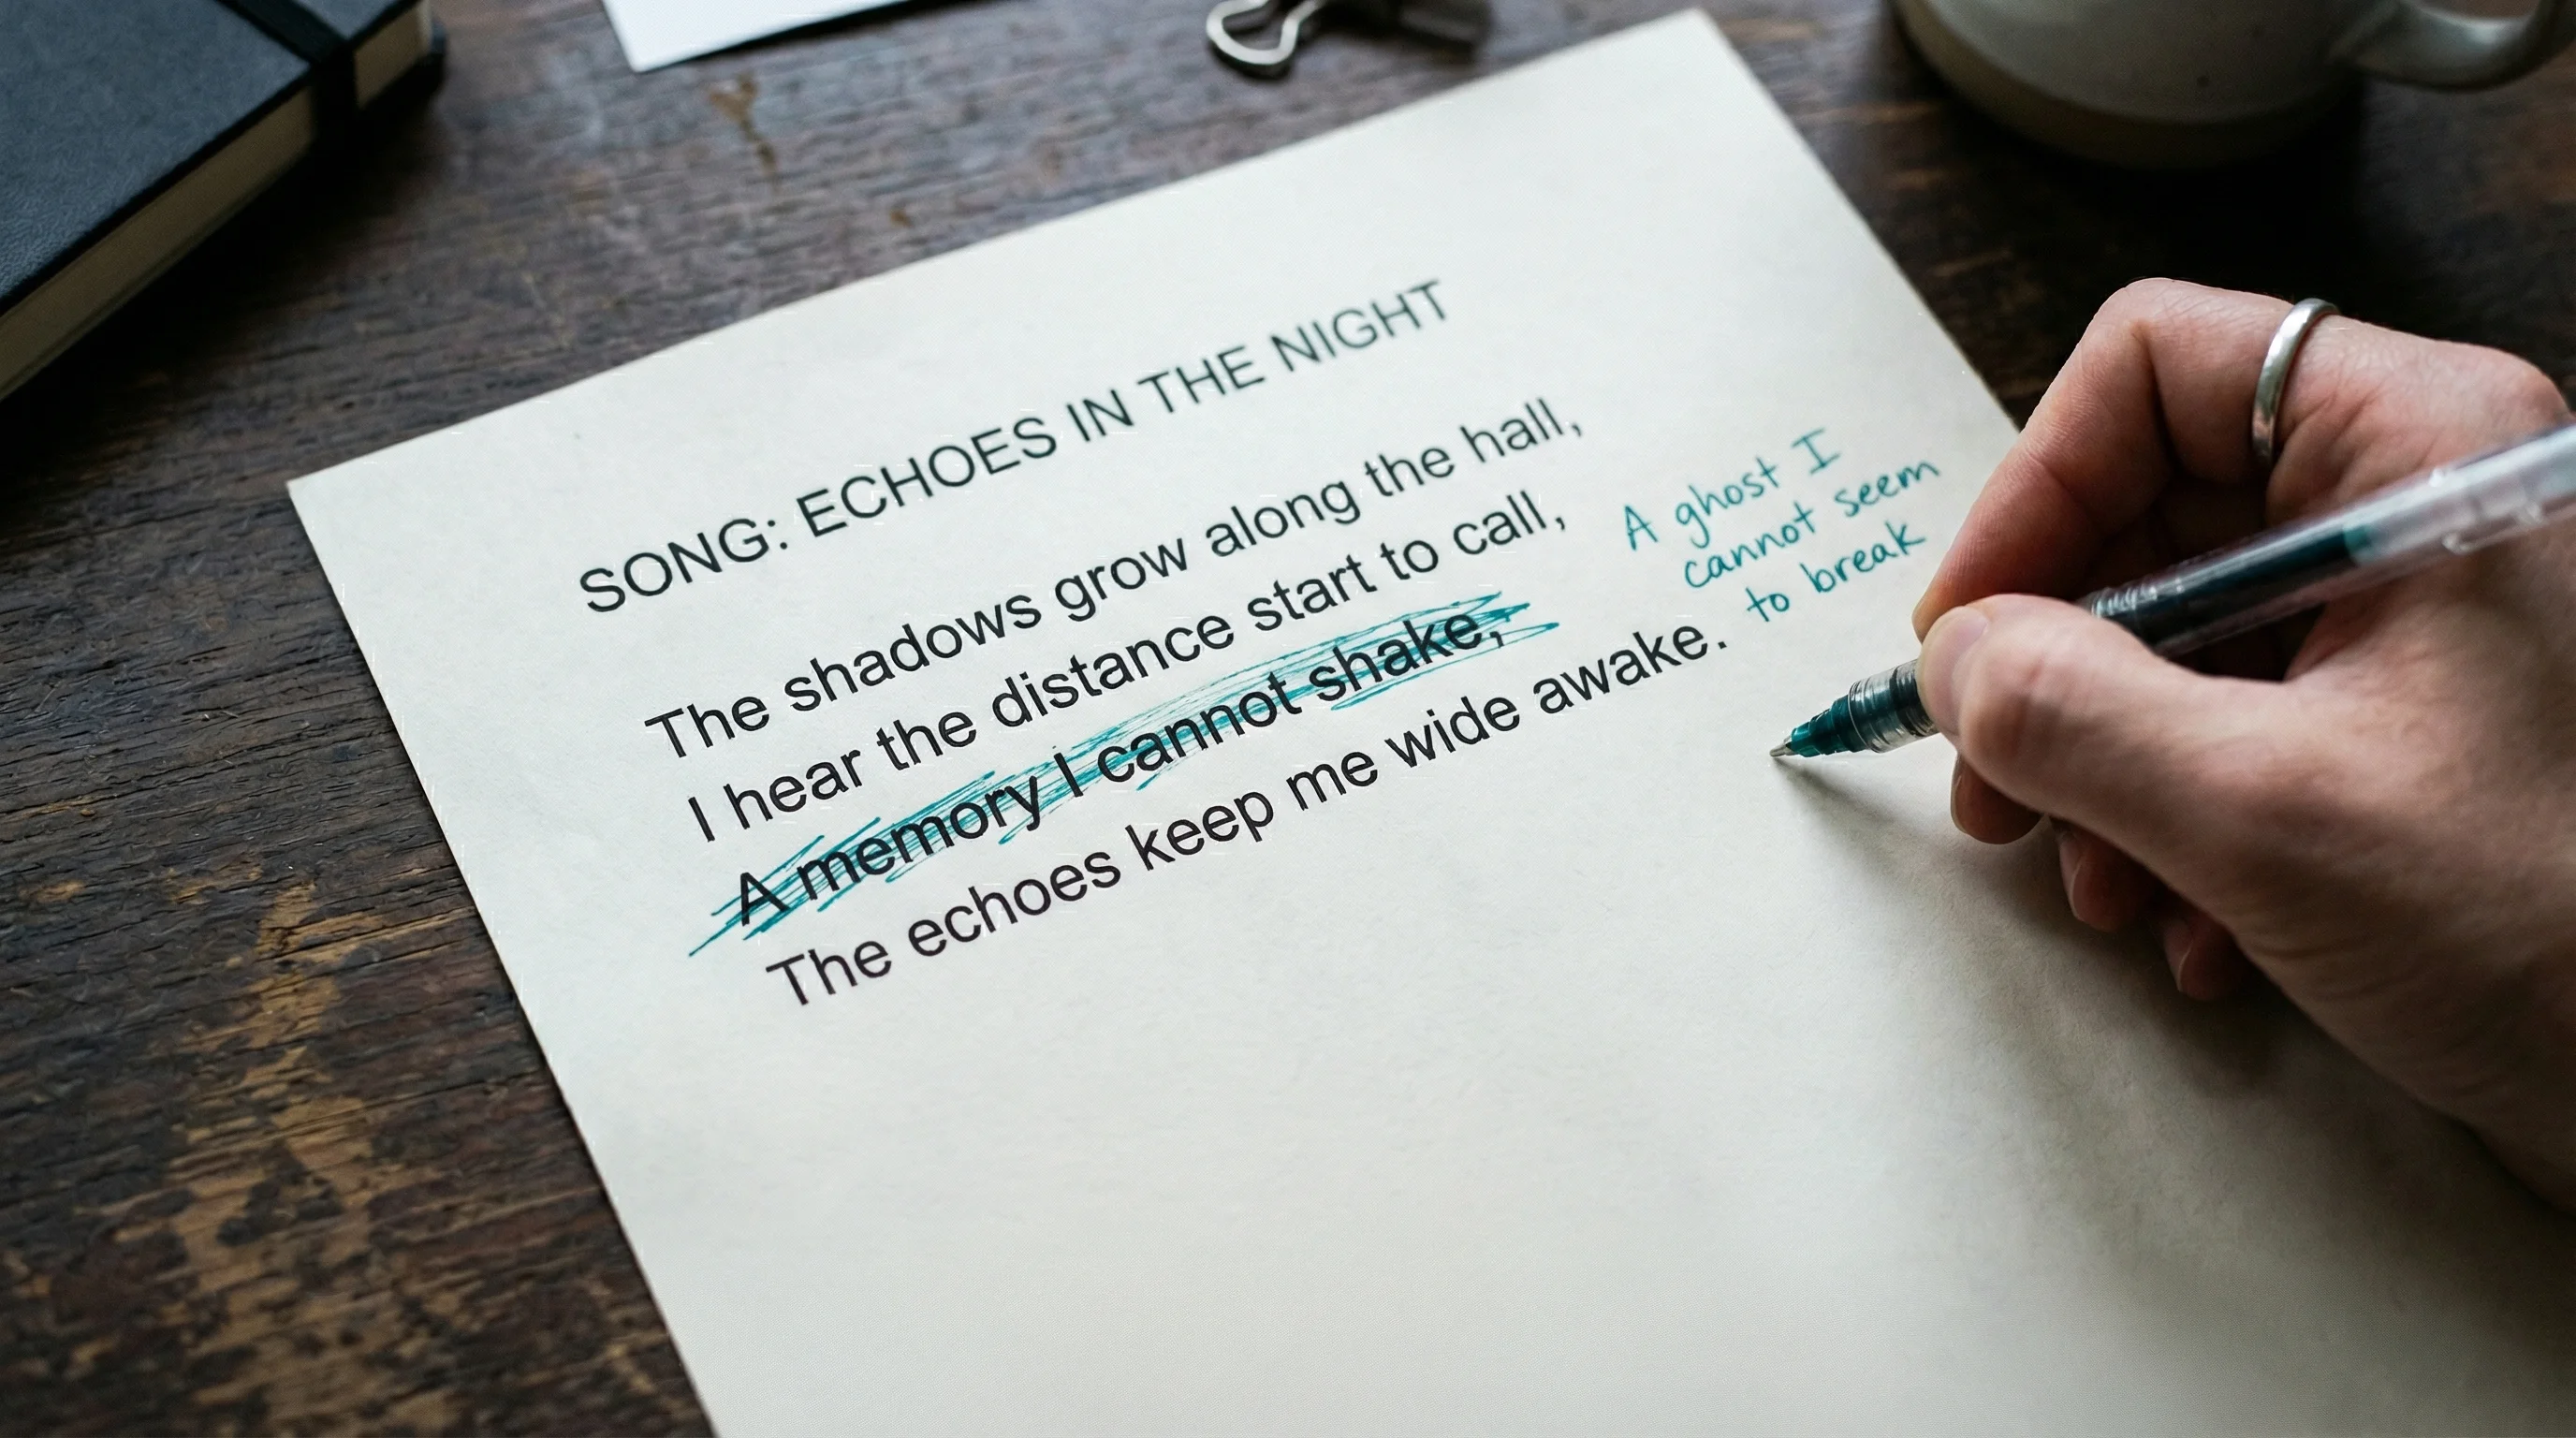 SONG: ECHOES IN THE NIGHT
The shadows grow along the hall,
I hear the distance start to call,
A memory I cannot shake,
The echoes keep me wide awake.
A ghost I
cannot seem
to break